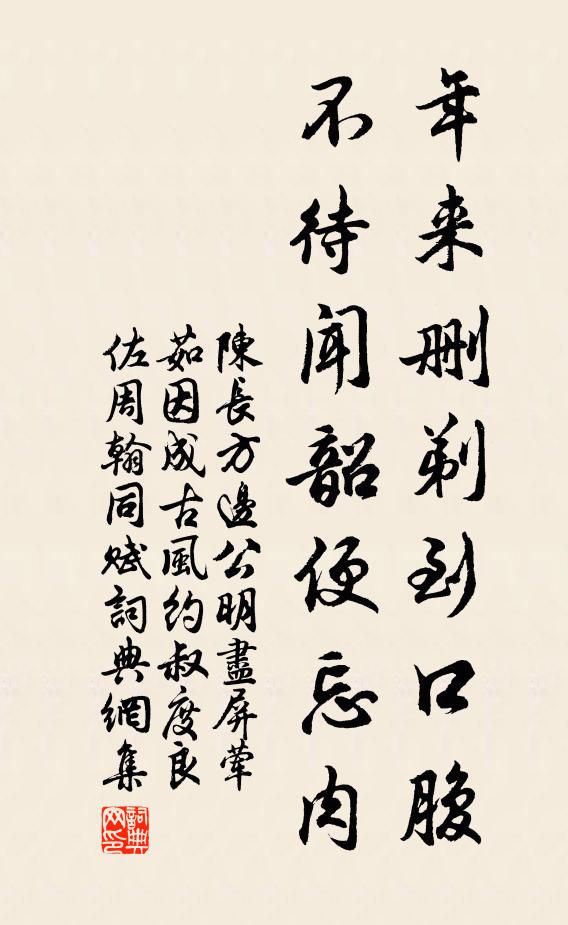 年来刪剃到口腹
不待聞韶便忘肉
陳長方邊公明盡屏葷
茹因成古風約叔度良
佐周翰同賦詞典網集
詞典網印